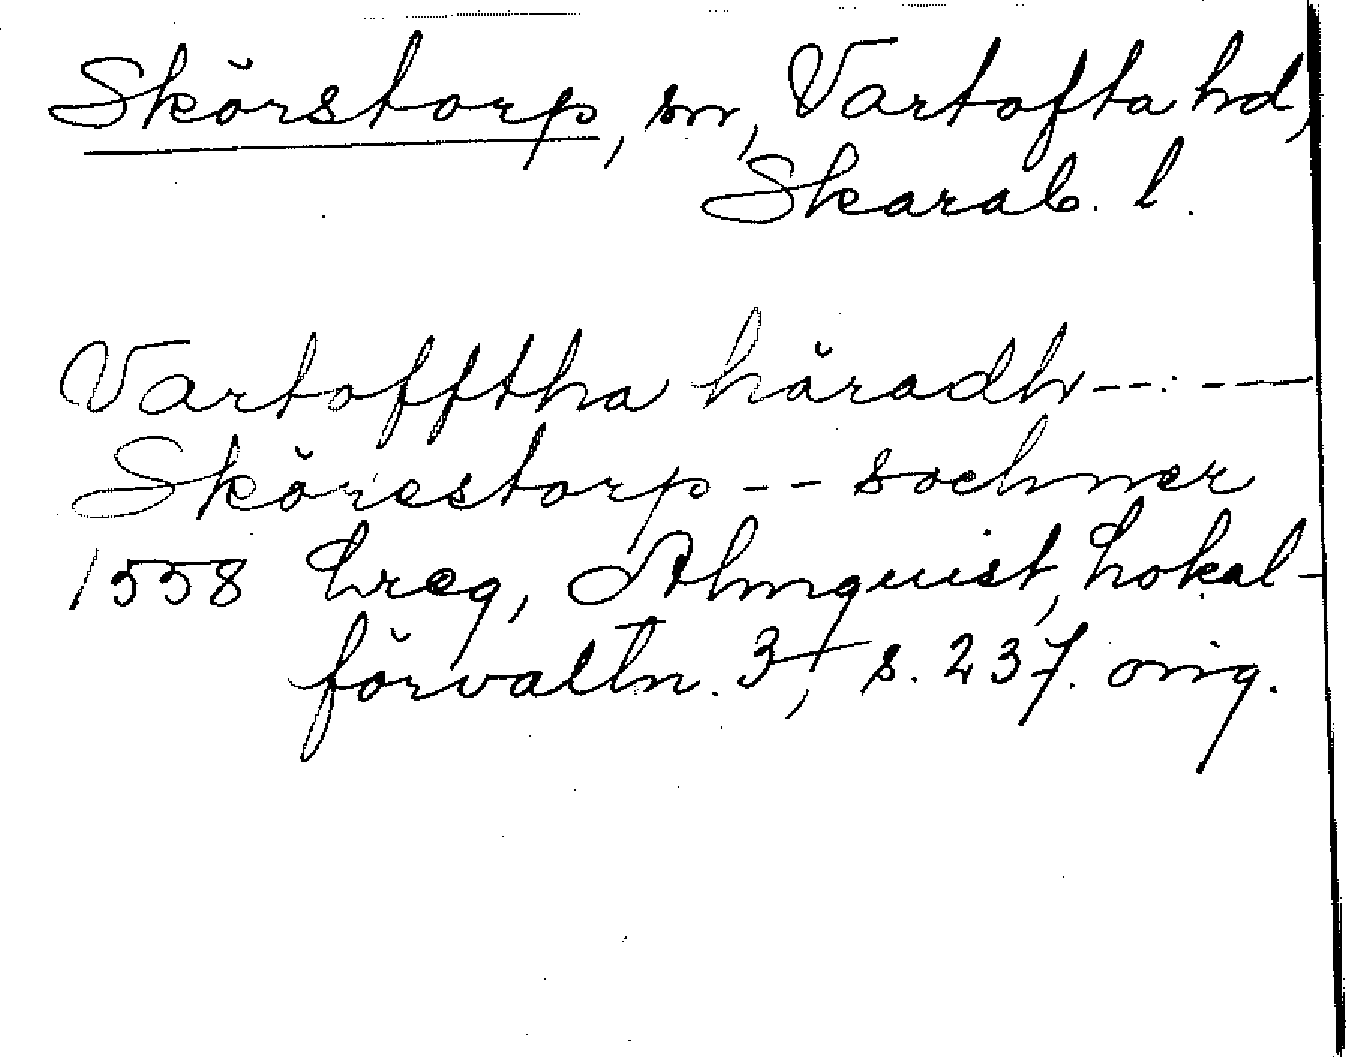 Skörstorp, sn, Vartofta hd,
Skarab. l.
Vartofftha häradh -- - --
Skörestorp -- sochner
1558 Lreg, Almquist, Lokal-
förvaltn. 3, s. 237. orig.